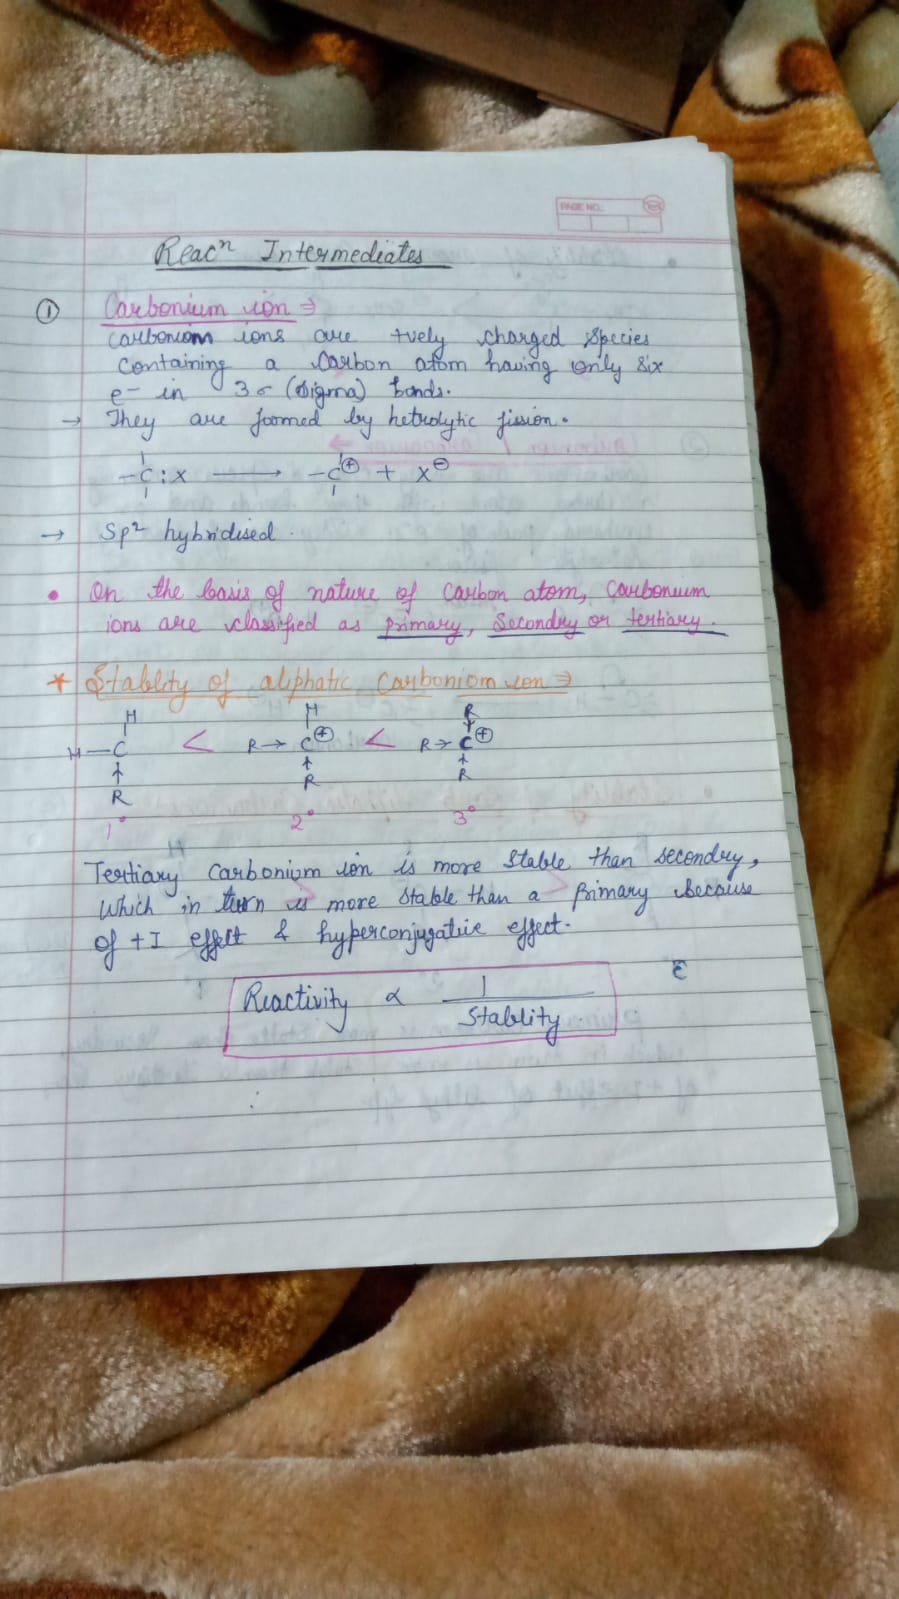 PAGE NO.
Reacⁿ Intermediates
① Carbonium ion ⇒
Carbonium ions are +vely charged species
containing a carbon atom having only six
e⁻ in 3σ (sigma) bonds.
→ They are formed by hetrolytic fission.
-C:X ⟶ -C⊕ + X⊖
→ Sp² hybridised.
• On the basis of nature of carbon atom, Carbonium
ions are classified as primary, Secondry or tertiary.
* Stablity of aliphatic Carboniom ion ⇒
H H R
H—C < R→ C⊕ < R→ C⊕
↑ ↑ ↑
R R R
1° 2° 3°
Tertiary Carbonium ion is more stable than secondry,
which in turn is more stable than a primary because
of +I effect & hyperconjugative effect.
Reactivity ∝ 1
Stablity